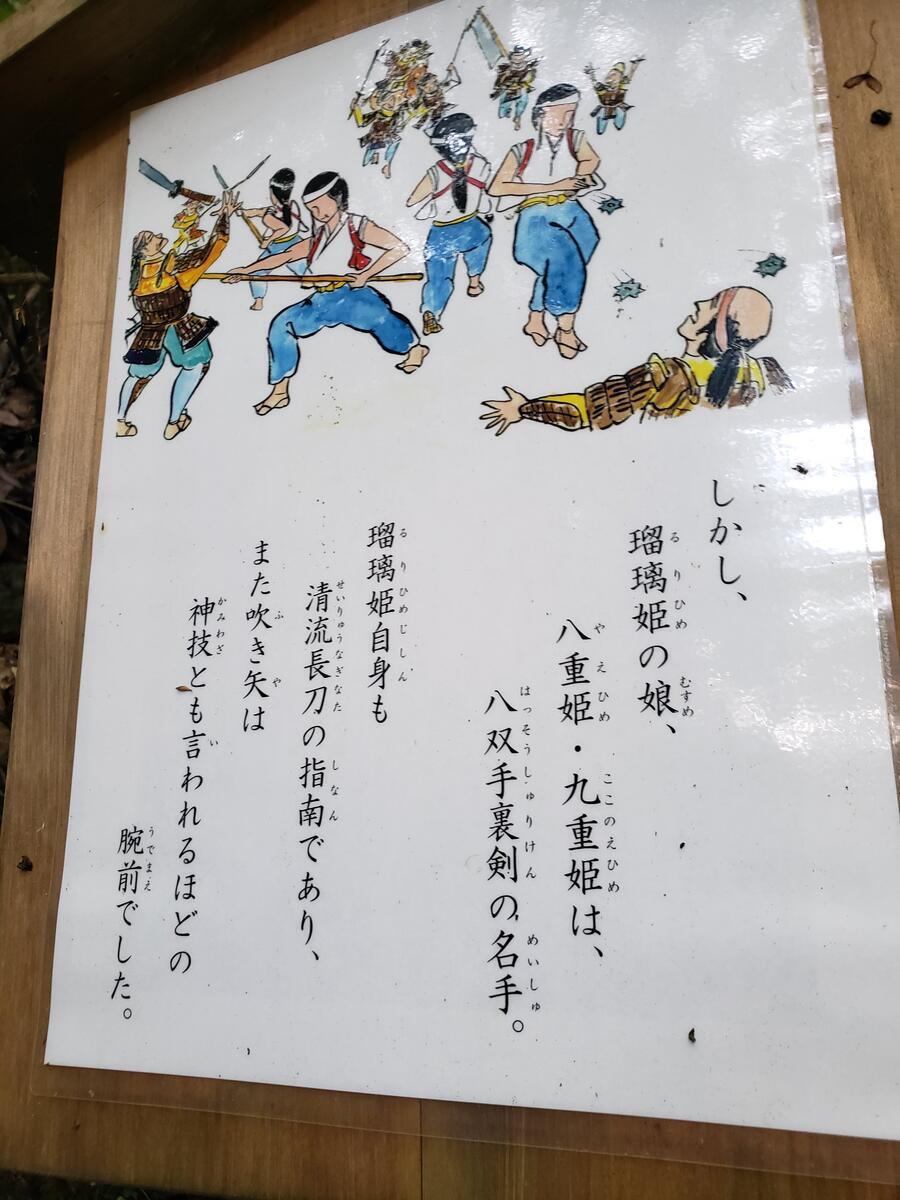 しかし、
瑠璃姫の娘、
八重姫・九重姫は、
八双手裏剣の名手。
瑠璃姫自身も
清流長刀の指南であり、
また吹き矢は
神技とも言われるほどの
腕前でした。